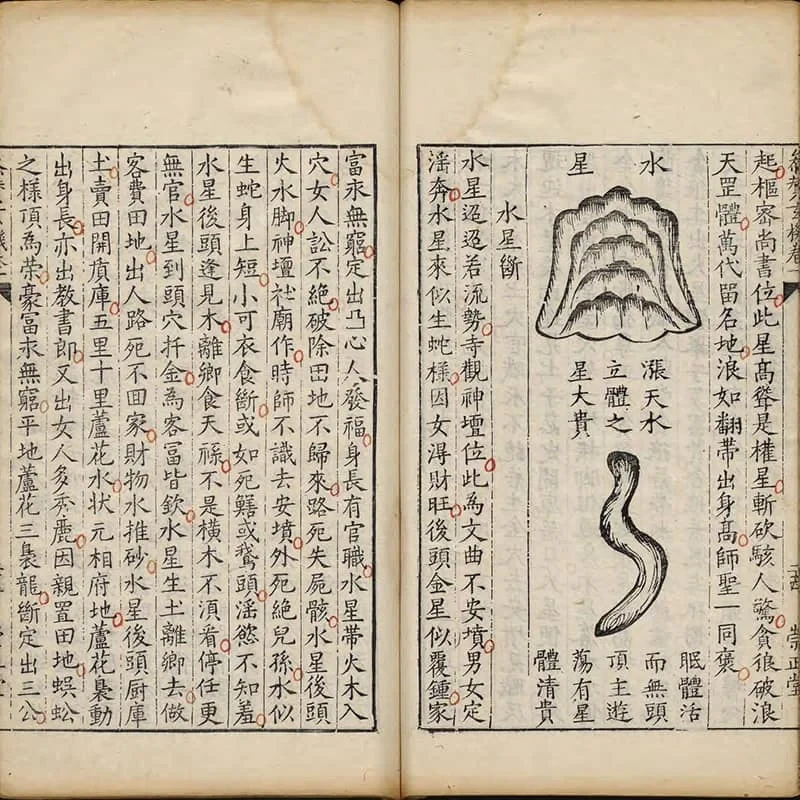 崇正堂
起樞密尚書位此星髙聳是權星斬砍駭人驚貪狼破浪
天罡體萬代畱名地浪如翻帶出身髙師聖一同褒
水星
漲天水
立體之
星大貴
眠體活
而無頭
頂主遊
蕩有星
體清貴
水星斷
水星迢迢若流勢寺觀神壇位此為文曲不安墳男女定
滛奔水星來似生蛇様因女淂財旺後頭金星似覆鍾家
富永無窮定出凸心人發福身長有官職水星帶火木入
穴女人訟不絶破除田地不歸來路死失屍骸水星後頭
火水脚神壇社廟作時師不識去安墳外死絶兒孫水似
生蛇身上短小可衣食斷或如死鱔或鵞頭滛慾不知羞
水星後頭逢見木離鄉食天禄不是橫木不湏看停任更
無官水星到頭穴扦金為客冨皆欽水星生土離鄉去做
客費田地出人路死不囬家財物水推砂水星後頭厨庫
土賣田開庫五里十里蘆花水状元相府地蘆花裊動
出身長亦出教書郎又出女人多秀麗因親置田地蜈蚣
之様頂為榮豪冨永無窮平地蘆花三裊龍斷定出三公